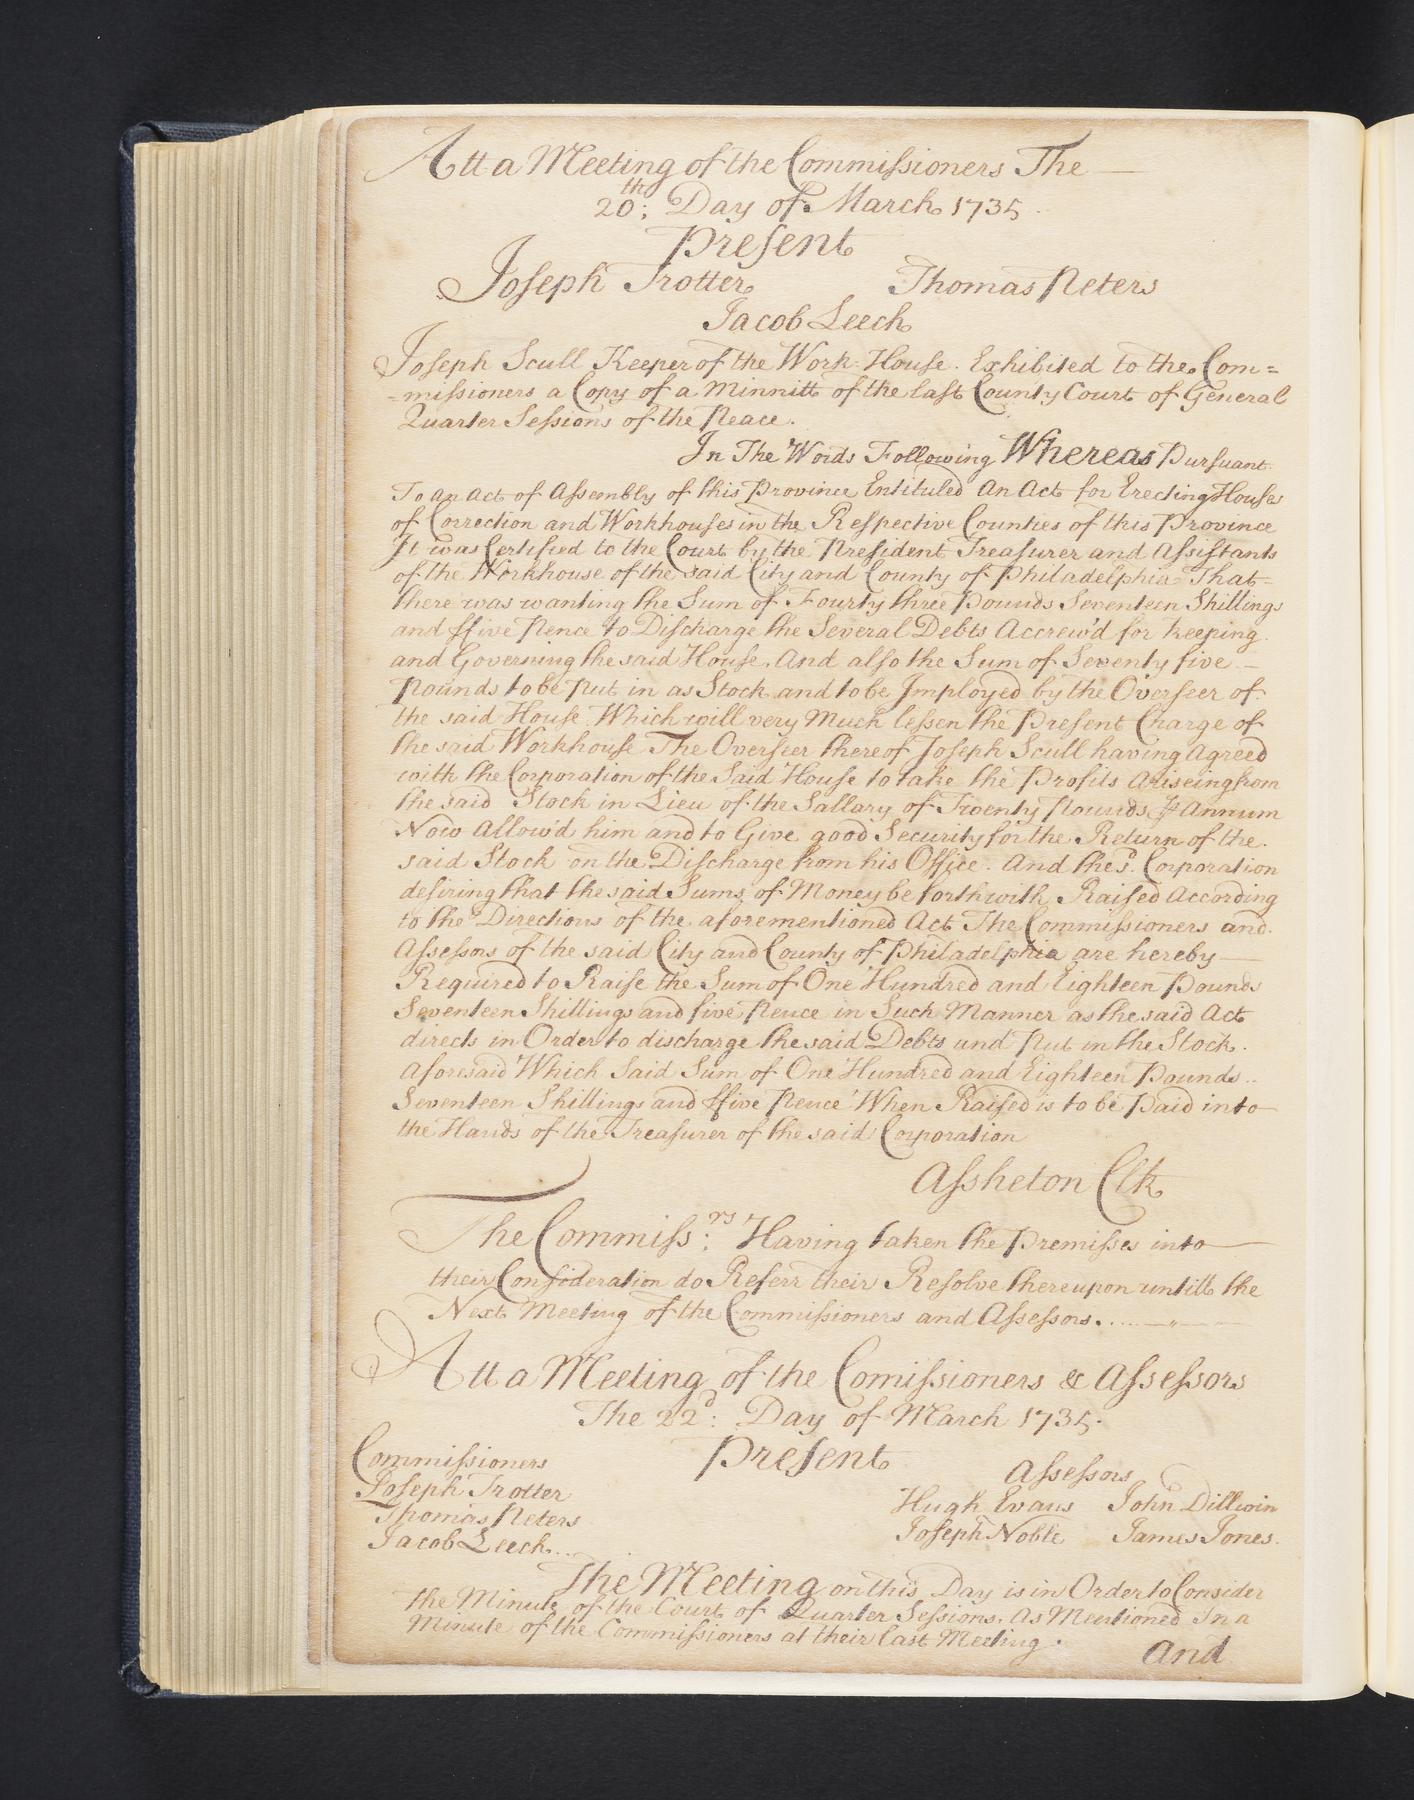 Att a Meeting of the Commissioners The
20th: Day of March 1735
Present
Joseph Trotter Thomas Peters
Jacob Leech
Joseph Scull Keeper of the Work-House. Exhibited to the Com=
=missioners a Copy of a Minnitt of the last County Court of General
Quarter Sessions of the Peace.
In The Words Following Whereas Pursuant
To an Act of Assembly of this Province Entituled An Act for Erecting Houses
of Correction and Workhouses in the Respective Counties of this Province
It was Certified to the Court by the President Treasurer and Assistants
of the Workhouse of the said City and County of Philadelphia That=
there was wanting the Sum of Fourty three Pounds Seventeen Shillings
and ffive Pence to Discharge the Several Debts Accrew'd for keeping
and Governing the said House. And also the Sum of Seventy five
Pounds to be Put in as Stock and to be Imployed by the Overseer of
the said House Which will very Much lessen the Present Charge of
the said Workhouse The Overseer thereof Joseph Scull having Agreed
with the Corporation of the Said House to take the Profits Ariseing from
the said Stock in Lieu of the Sallary of Twenty Pounds ⅌ Annum
Now Allow'd him and to Give good Security for the Return of the
said Stock on the Discharge from his Office. And the sd. Corporation
desiring that the said Sums of Money be forthwith Raised According
to the Directions of the aforementioned Act The Commissioners and
Assessors of the said City and County of Philadelphia are hereby
Required to Raise the Sum of One Hundred and Eighteen Pounds
Seventeen Shillings and five Pence in Such Manner as the said Act
directs in Order to discharge the said Debts and Put in the Stock.
Aforesaid Which Said Sum of One Hundred and Eighteen Pounds..
Seventeen Shillings and ffive Pence When Raised is to be Paid into
the Hands of the Treasurer of the said Corporation
Assheton Clk
The Commiss:rs Having taken the Premisses into
their Consideration do Referr their Resolve thereupon untill the
Next Meeting of the Commissioners and Assessors.....
Att a Meeting of the Comissioners & Assessors
The 22d: Day of March 1735.
Present
Commissioners Assessors
Joseph Trotter Hugh Evans John Dillwin
Thomas Peters Joseph Noble James Jones.
Jacob Leech...
The Meeting on this Day is in Order to Consider
the Minute of the Court of Quarter Sessions. As Mentioned In a
Minute of the Commissioners at their last Meeting.
And